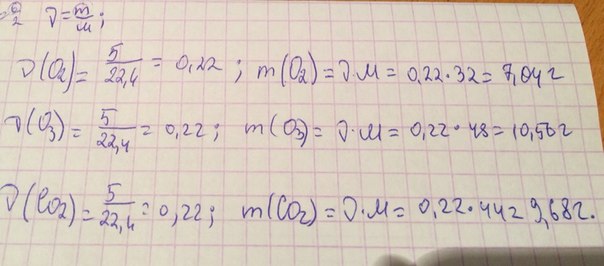 ν = m/M;
ν(O₂) = 5/22,4 = 0,22; m(O₂) = ν·M = 0,22·32 = 7,04 г
ν(O₃) = 5/22,4 = 0,22; m(O₃) = ν·M = 0,22·48 = 10,56 г
ν(CO₂) = 5/22,4 = 0,22; m(CO₂) = ν·M = 0,22·44 = 9,68 г.